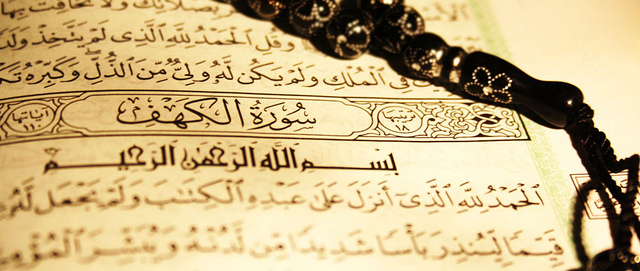 وَقُلِ ٱلْحَمْدُ لِلَّهِ ٱلَّذِى لَمْ يَتَّخِذْ وَلَدًا
فِى ٱلْمُلْكِ وَلَمْ يَكُن لَّهُۥ وَلِىٌّ مِّنَ ٱلذُّلِّ وَكَبِّرْهُ
ترتيبها ١٨ سُورَةُ الكَهْفِ آياتها ١١٠
بِسْمِ ٱللَّهِ ٱلرَّحْمَٰنِ ٱلرَّحِيمِ
ٱلْحَمْدُ لِلَّهِ ٱلَّذِىٓ أَنزَلَ عَلَىٰ عَبْدِهِ ٱلْكِتَٰبَ وَلَمْ يَجْعَل لَّهُۥ
قَيِّمًا لِّيُنذِرَ بَأْسًا شَدِيدًا مِّن لَّدُنْهُ وَيُبَشِّرَ